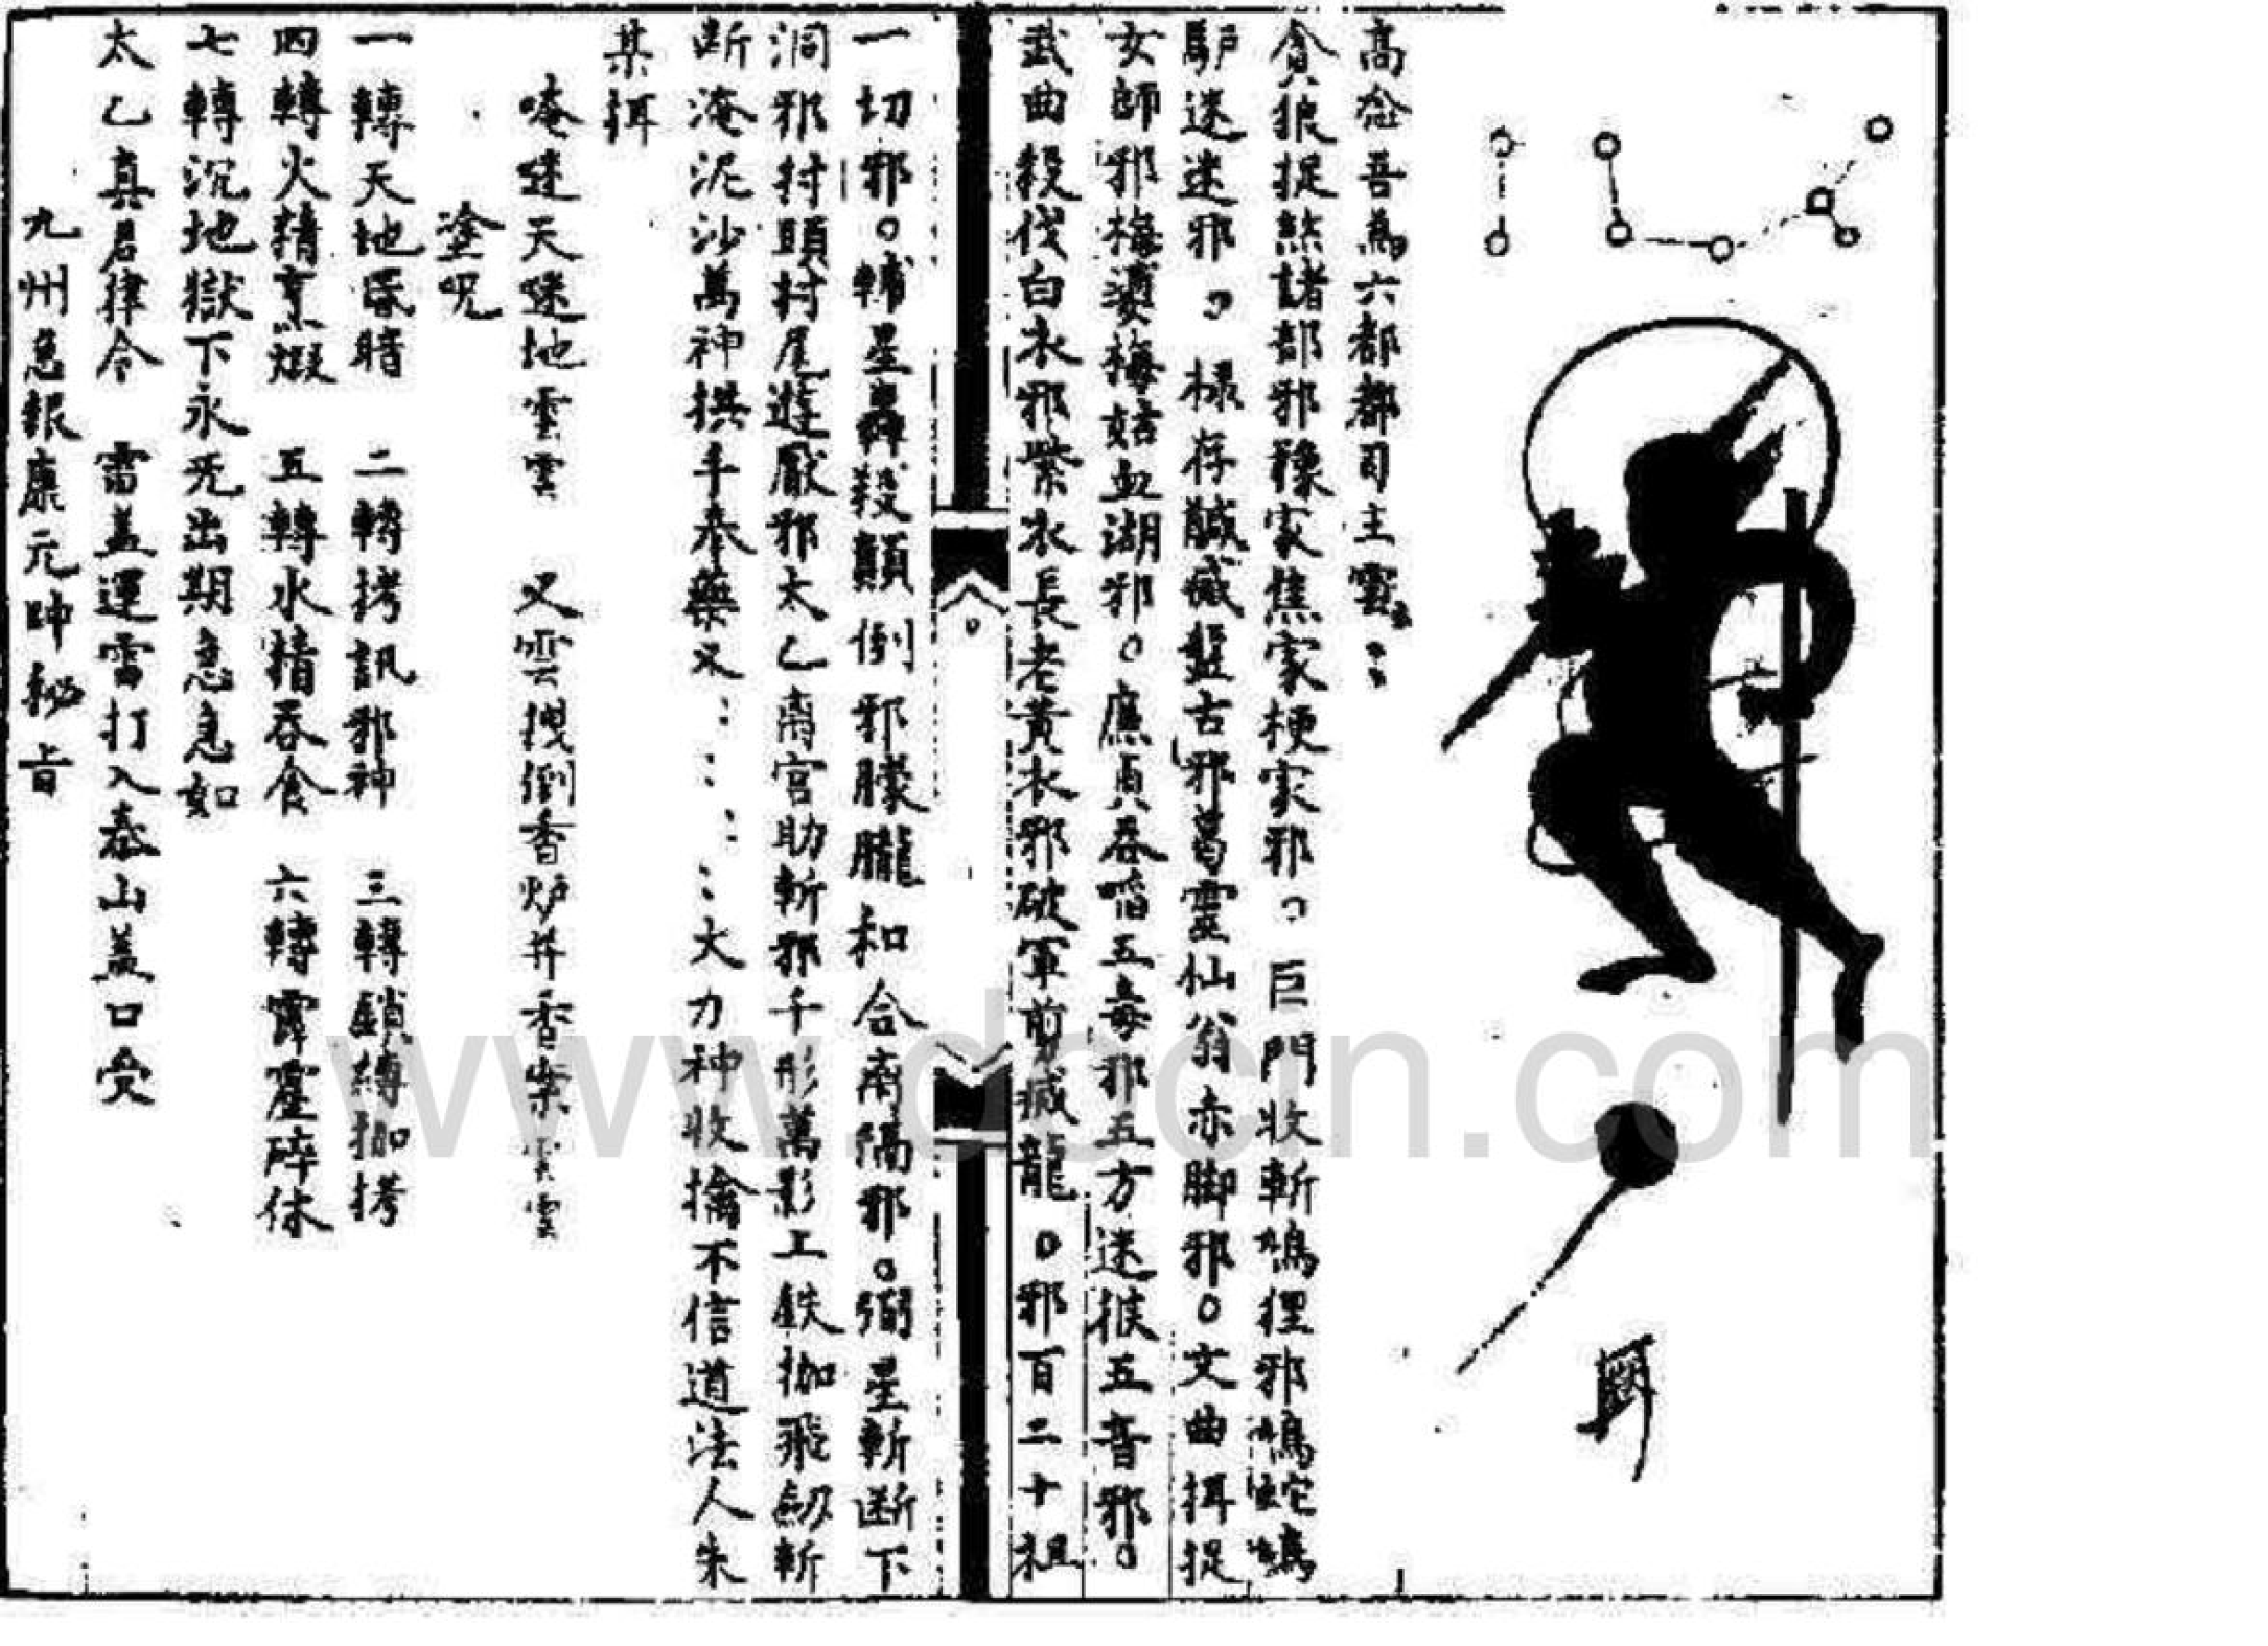 高念吾為六都都司主雲：：
貪狼捉煞諸部邪豫家焦家梗家邪。巨門收斬鳩狸邪鳩蛇鳩
馿迷迷邪。祿存馘滅盤古邪葛靈仙翁赤脚邪。文曲拜捉
女師邪梅婆梅姑血湖邪。廉貞吞啗五毒邪五方迷猴五音邪。
武曲殺伐白衣邪紫衣長老黃衣邪破軍剪滅龍。邪百二十祖
一切邪。輔星轟殺顛倒邪朦朧和合南隔邪。弼星斬断下
洞邪村頭村尾遊厭邪太乙南宮助斬邪千形萬影工鉄枷飛劒斬
断淹泥沙萬神拱手奉藥又：：：：大力神收擒不信道法人朱
某拜
唵迷天迷地雲雲 又雲拽倒香炉并香案雲雲
塗呪
一轉天地昏暗 二轉拷訊邪神 三轉鎖縛枷拷
四轉火精烹煆 五轉水精吞食 六轉霹靂碎体
七轉沉地獄下永旡出期急急如
太乙真君律令 雷盖運雷打入泰山盖口受
九州急報康元帥秘旨
www.docin.com